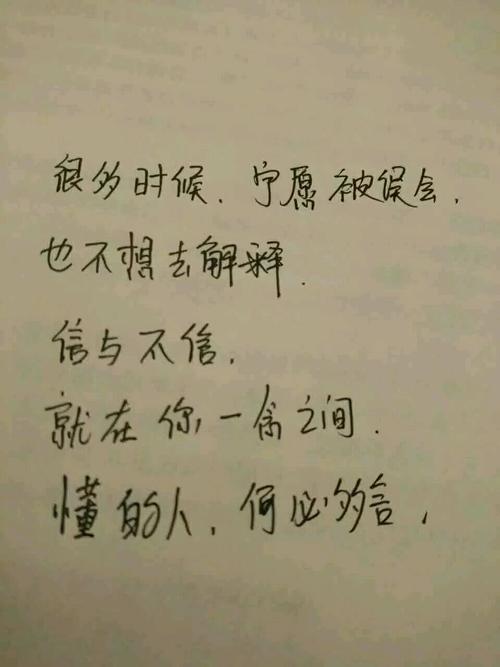 很多时候.宁愿被误会,
也不想去解释.
信与不信,
就在你一念之间.
懂的人,何必多言,